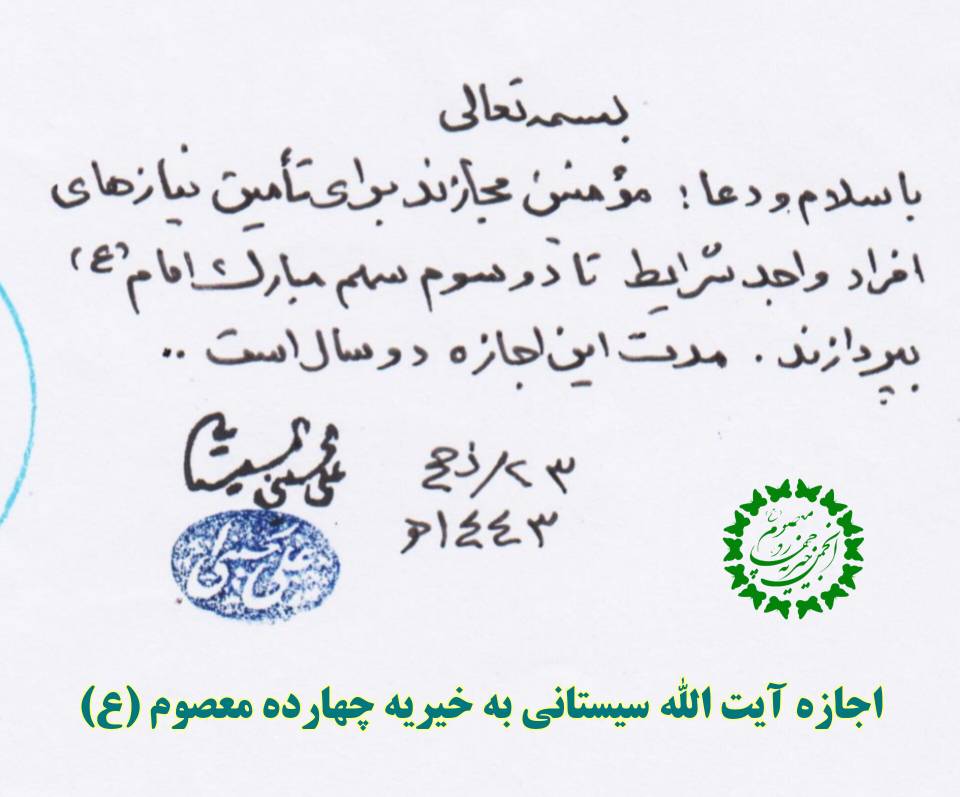 بسمه تعالی
با سلام و دعا؛ مؤمنین مجازند برای تأمین نیازهای
افراد واجد شرایط تا دو سوم سهم مبارک امام (ع)
بپردازند. مدت این اجازه دو سال است ..
۲۳/ذحج
۱۴۴۳ه
علی الحسینی السیستانی
انجمن خیریه چهارده معصوم (ع)
اجازه آیت الله سیستانی به خیریه چهارده معصوم (ع)